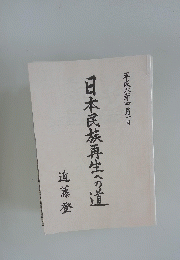 平成八年四月一日
日本民族再生への道
近藤登